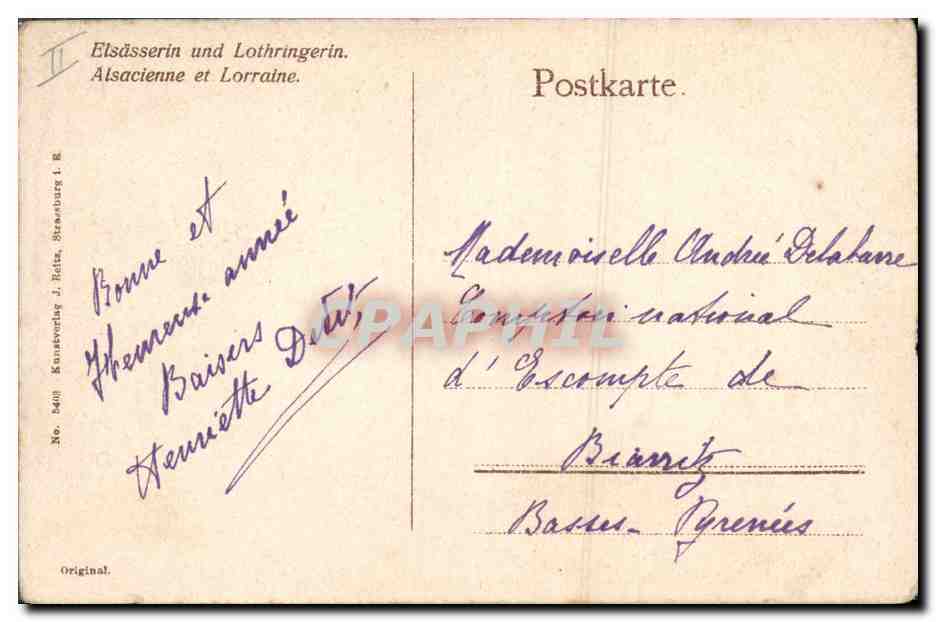 II
Elsässerin und Lothringerin.
Alsacienne et Lorraine.
Postkarte.
No. 5403 Kunstverlag J. Reitz, Strassburg i. E.
Bonne et
Heureuse année
Baisers
Henriette
Mademoiselle André Delabarre
Comptoir national
d'Escompte de
Biarritz
Basses-Pyrenées
Original.
CPAPHIL